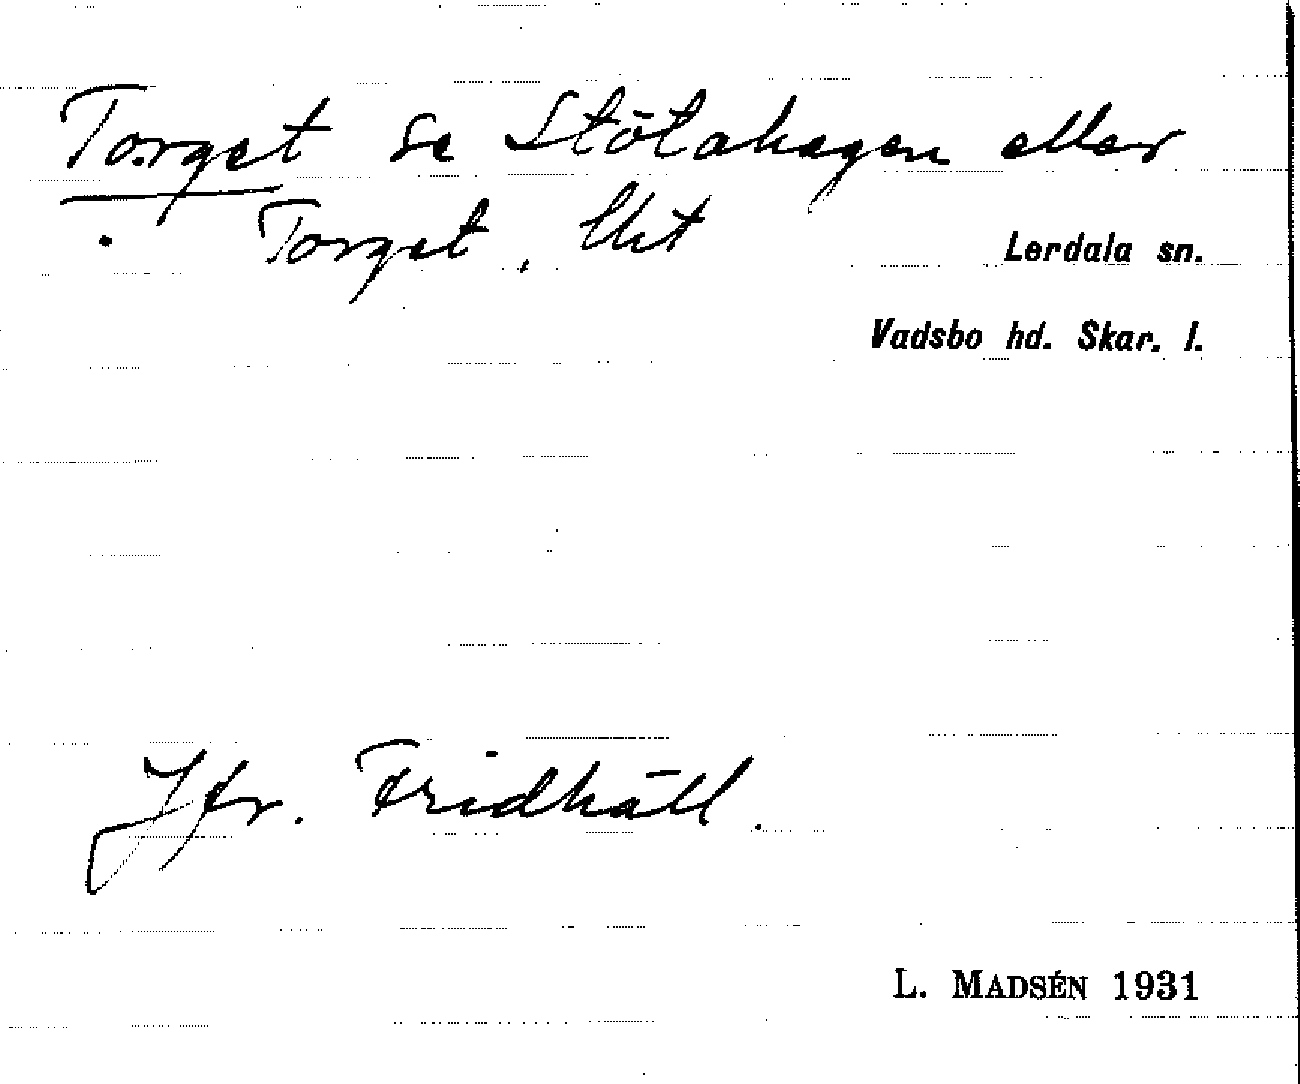 Torget se Stötahagen eller
Torget, Utet
Lerdala sn.
Vadsbo hd. Skar. l.
Jfr. Fridhäll.
L. MADSÉN 1931